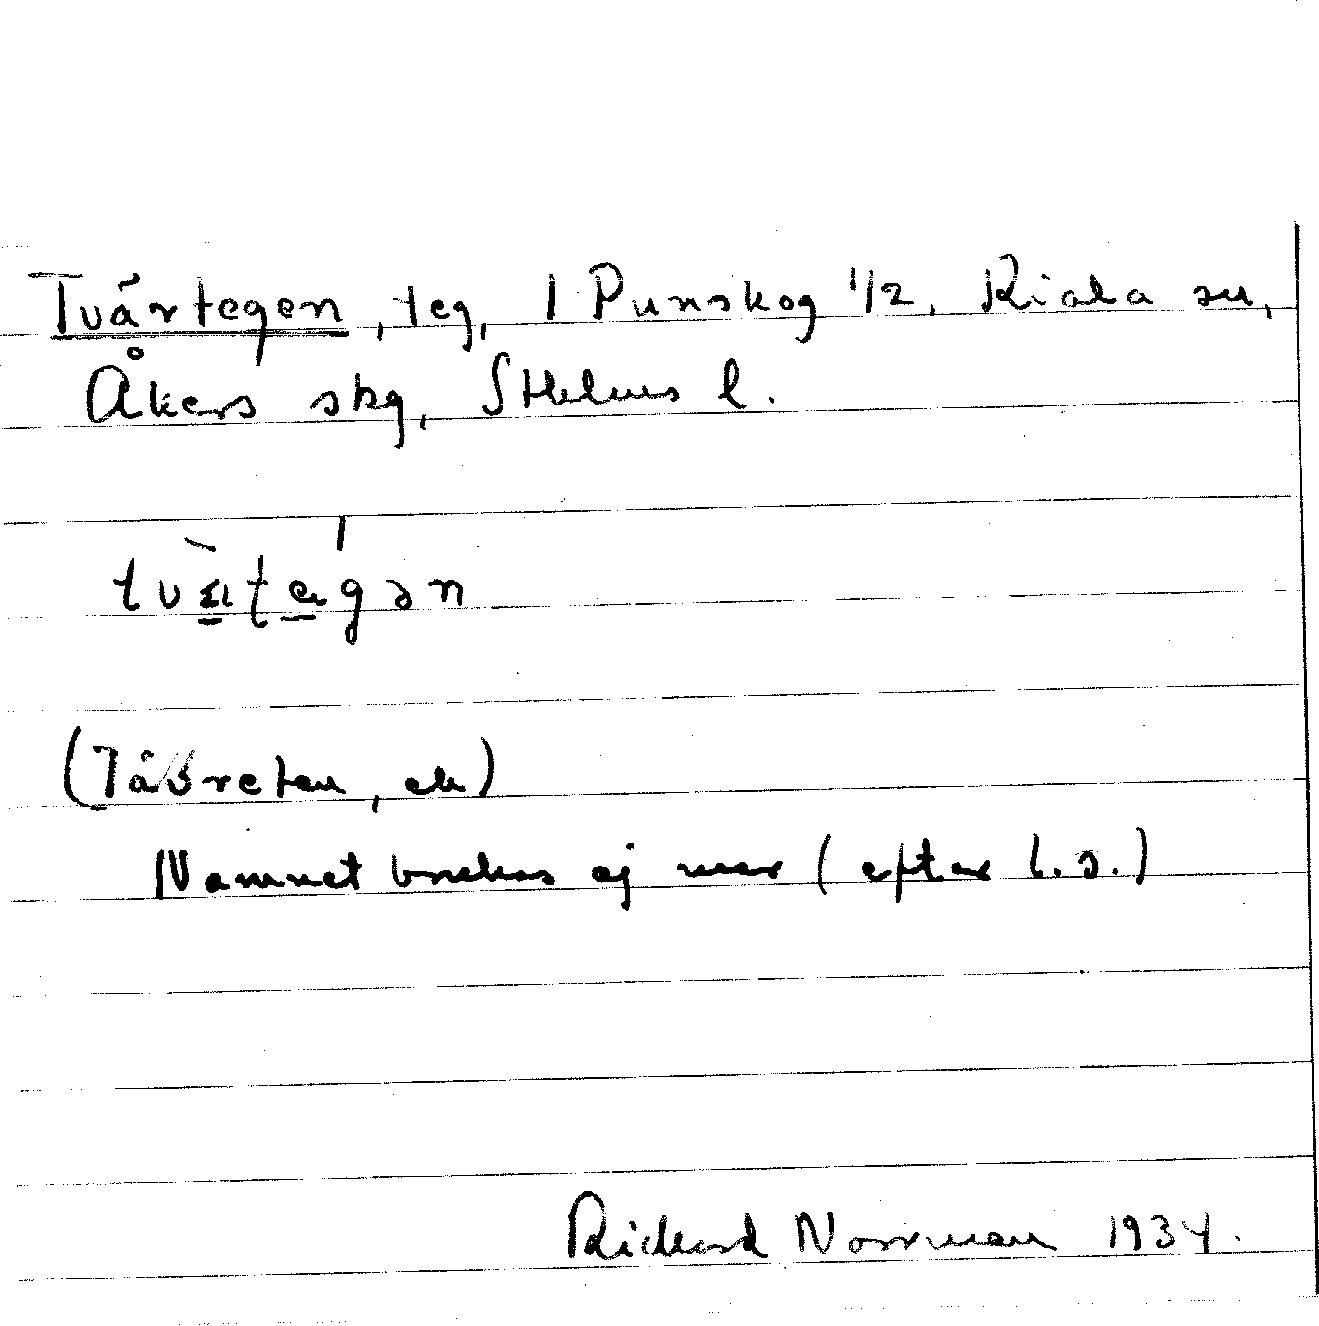 Tvärtegen, teg, 1 Punskog 1/2, Riala sn,
Åkers skg, Sthlms l.
(Tåbreten, ek)
Namnet brukas ej mer (efter l.s.)
Rickard Norrman 1934.